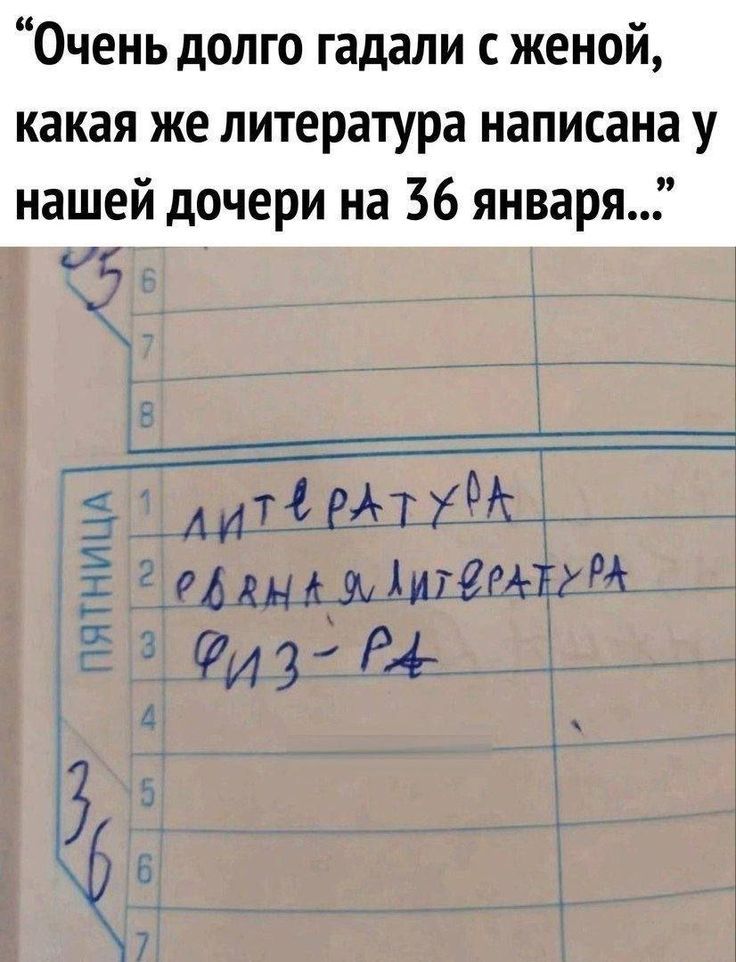 “Очень долго гадали с женой,
какая же литература написана у
нашей дочери на 36 января...”
5
6
7
8
ПЯТНИЦА
1 ЛИТЕРАТУРА
2 ЛИТЕРАТУРА
3 ФИЗ-РА
4
5
36
6
7